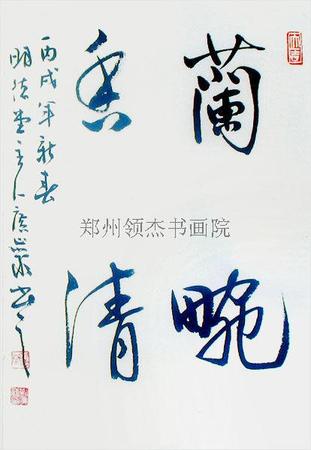 蘭畹
香清
丙戌年新春
明德堂主人
郑州领杰书画院